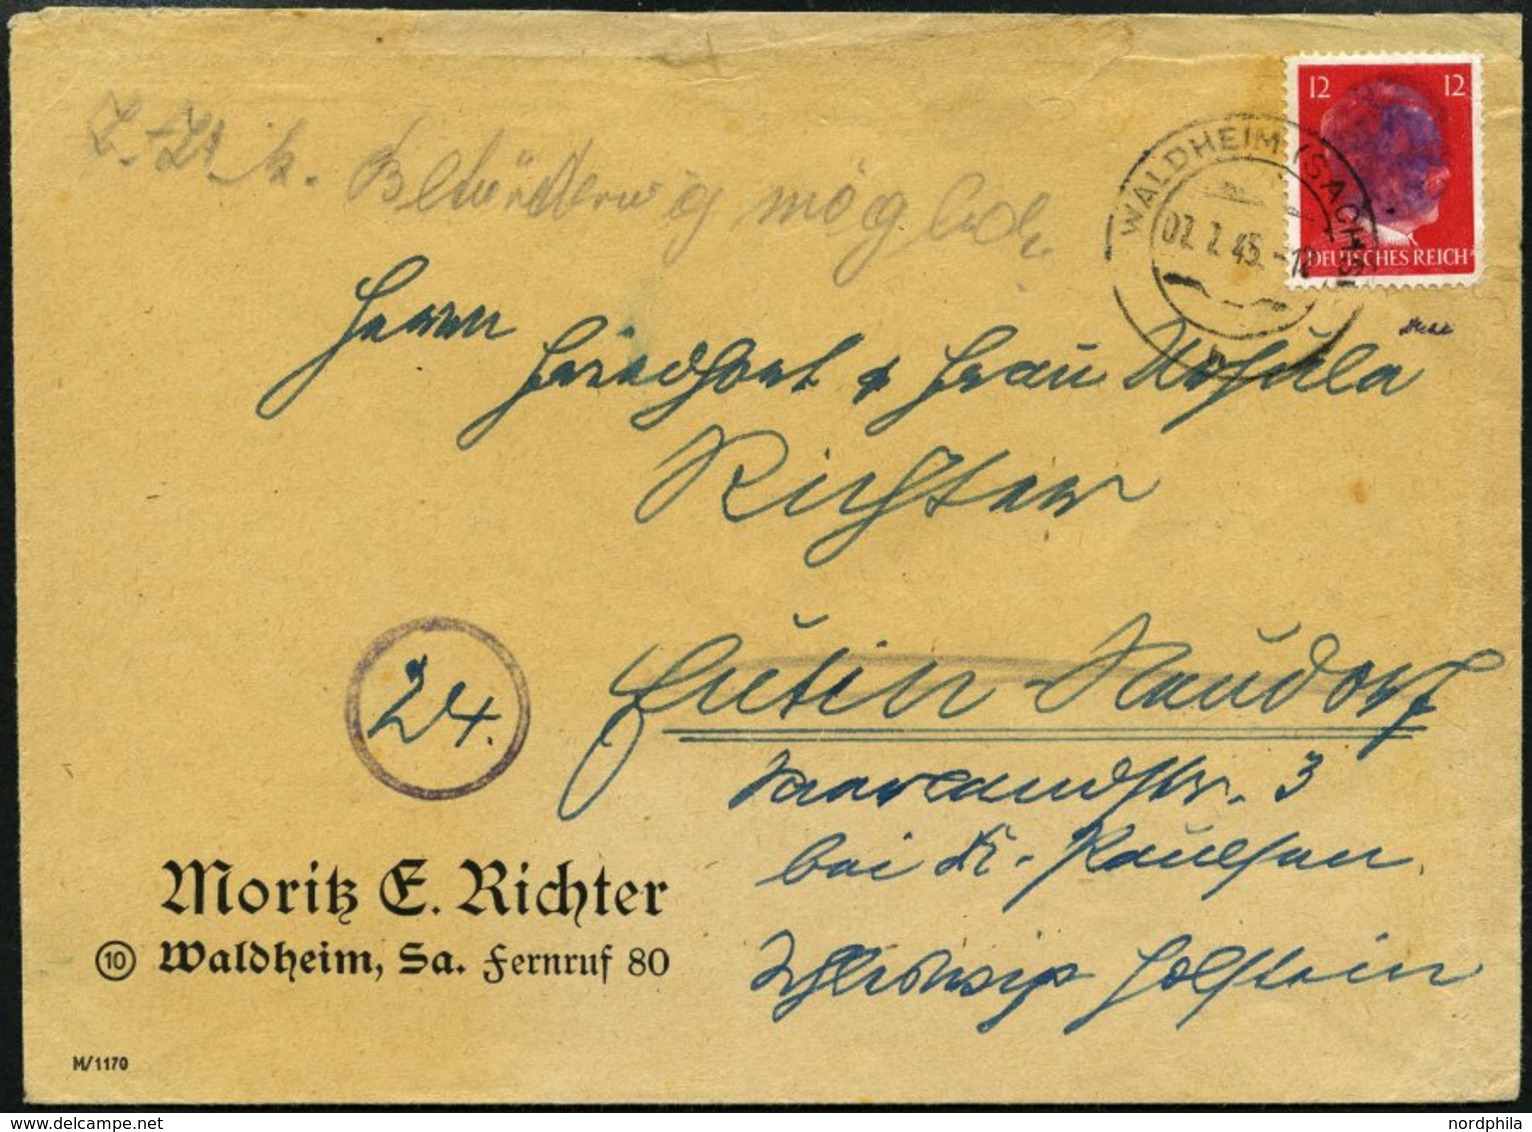 12 12
DEUTSCHES REICH
WALDHEIM (SACHS)
07.7.45.-12
Z. Zt. k. Beförderung möglich.
Herrn
Friedhart & Frau Ursula
Richter
24.
Eutin-Neudorf
Saarlandstr. 3
bei Dr. Paulsen
Schleswig Holstein
Moritz E. Richter
10 Waldheim, Sa. Fernruf 80
M/1170
nordphila